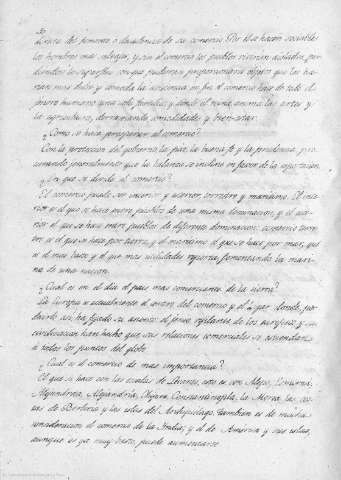 30
de la del fomento ó decadencia de su comercio. Por él se hacen sociables
los hombres mas salvajes, y sin el comercio los pueblos vivirian aislados, per
diendo lo superfluo con que pudieran proporcionarse objetos que les ha
rian mas dulce y cómoda la existencia en fin el comercio hace de todo el
género humano una sola familia, y donde él reina anima las artes y
la agricultura, derramando comodidades y bien-estar.
¿Como se hace prosperar al comercio?
Con la proteccion del gobierno, la paz, la buena fe y la prudencia, pro
curando generalmente que la balanza se incline en favor de la esportacion.
¿En que se divide el comercio?
El comercio puede ser interior y esterior, terrestre y marítimo. El inte
rior es el que se hace entre pueblos de una misma dominacion, y el este
rior el que se hace entre pueblos de diferente dominacion: comercio terres
tre es el que se hace por tierra, y el marítimo el que se hace por mar, que
es el mas vasto y el que mas utilidades reporta, fomentando la mari
na de una nacion.
¿Cual es en el dia el pais mas comerciante de la tierra?
La Europa es actualmente el centro del comercio y el lugar donde, por
decirlo asi, ha fijado su asiento: el genio vigilante de los europeos y su
civilizacion han hecho que sus relaciones comerciales se estiendan
á todos los puntos del globo.
¿Cual es el comercio de mas importancia?
El que se hace con las escalas de Levante, esto es con Alepo, Esmirna,
Alejandría, Constantinopla, la Morea, las cos
tas de Berbería y las islas del Archipiélago. tambien es de mucha
consideracion el comercio de la India, y el de América y sus islas,
aunque es ya muy vasto, puede aumentarse